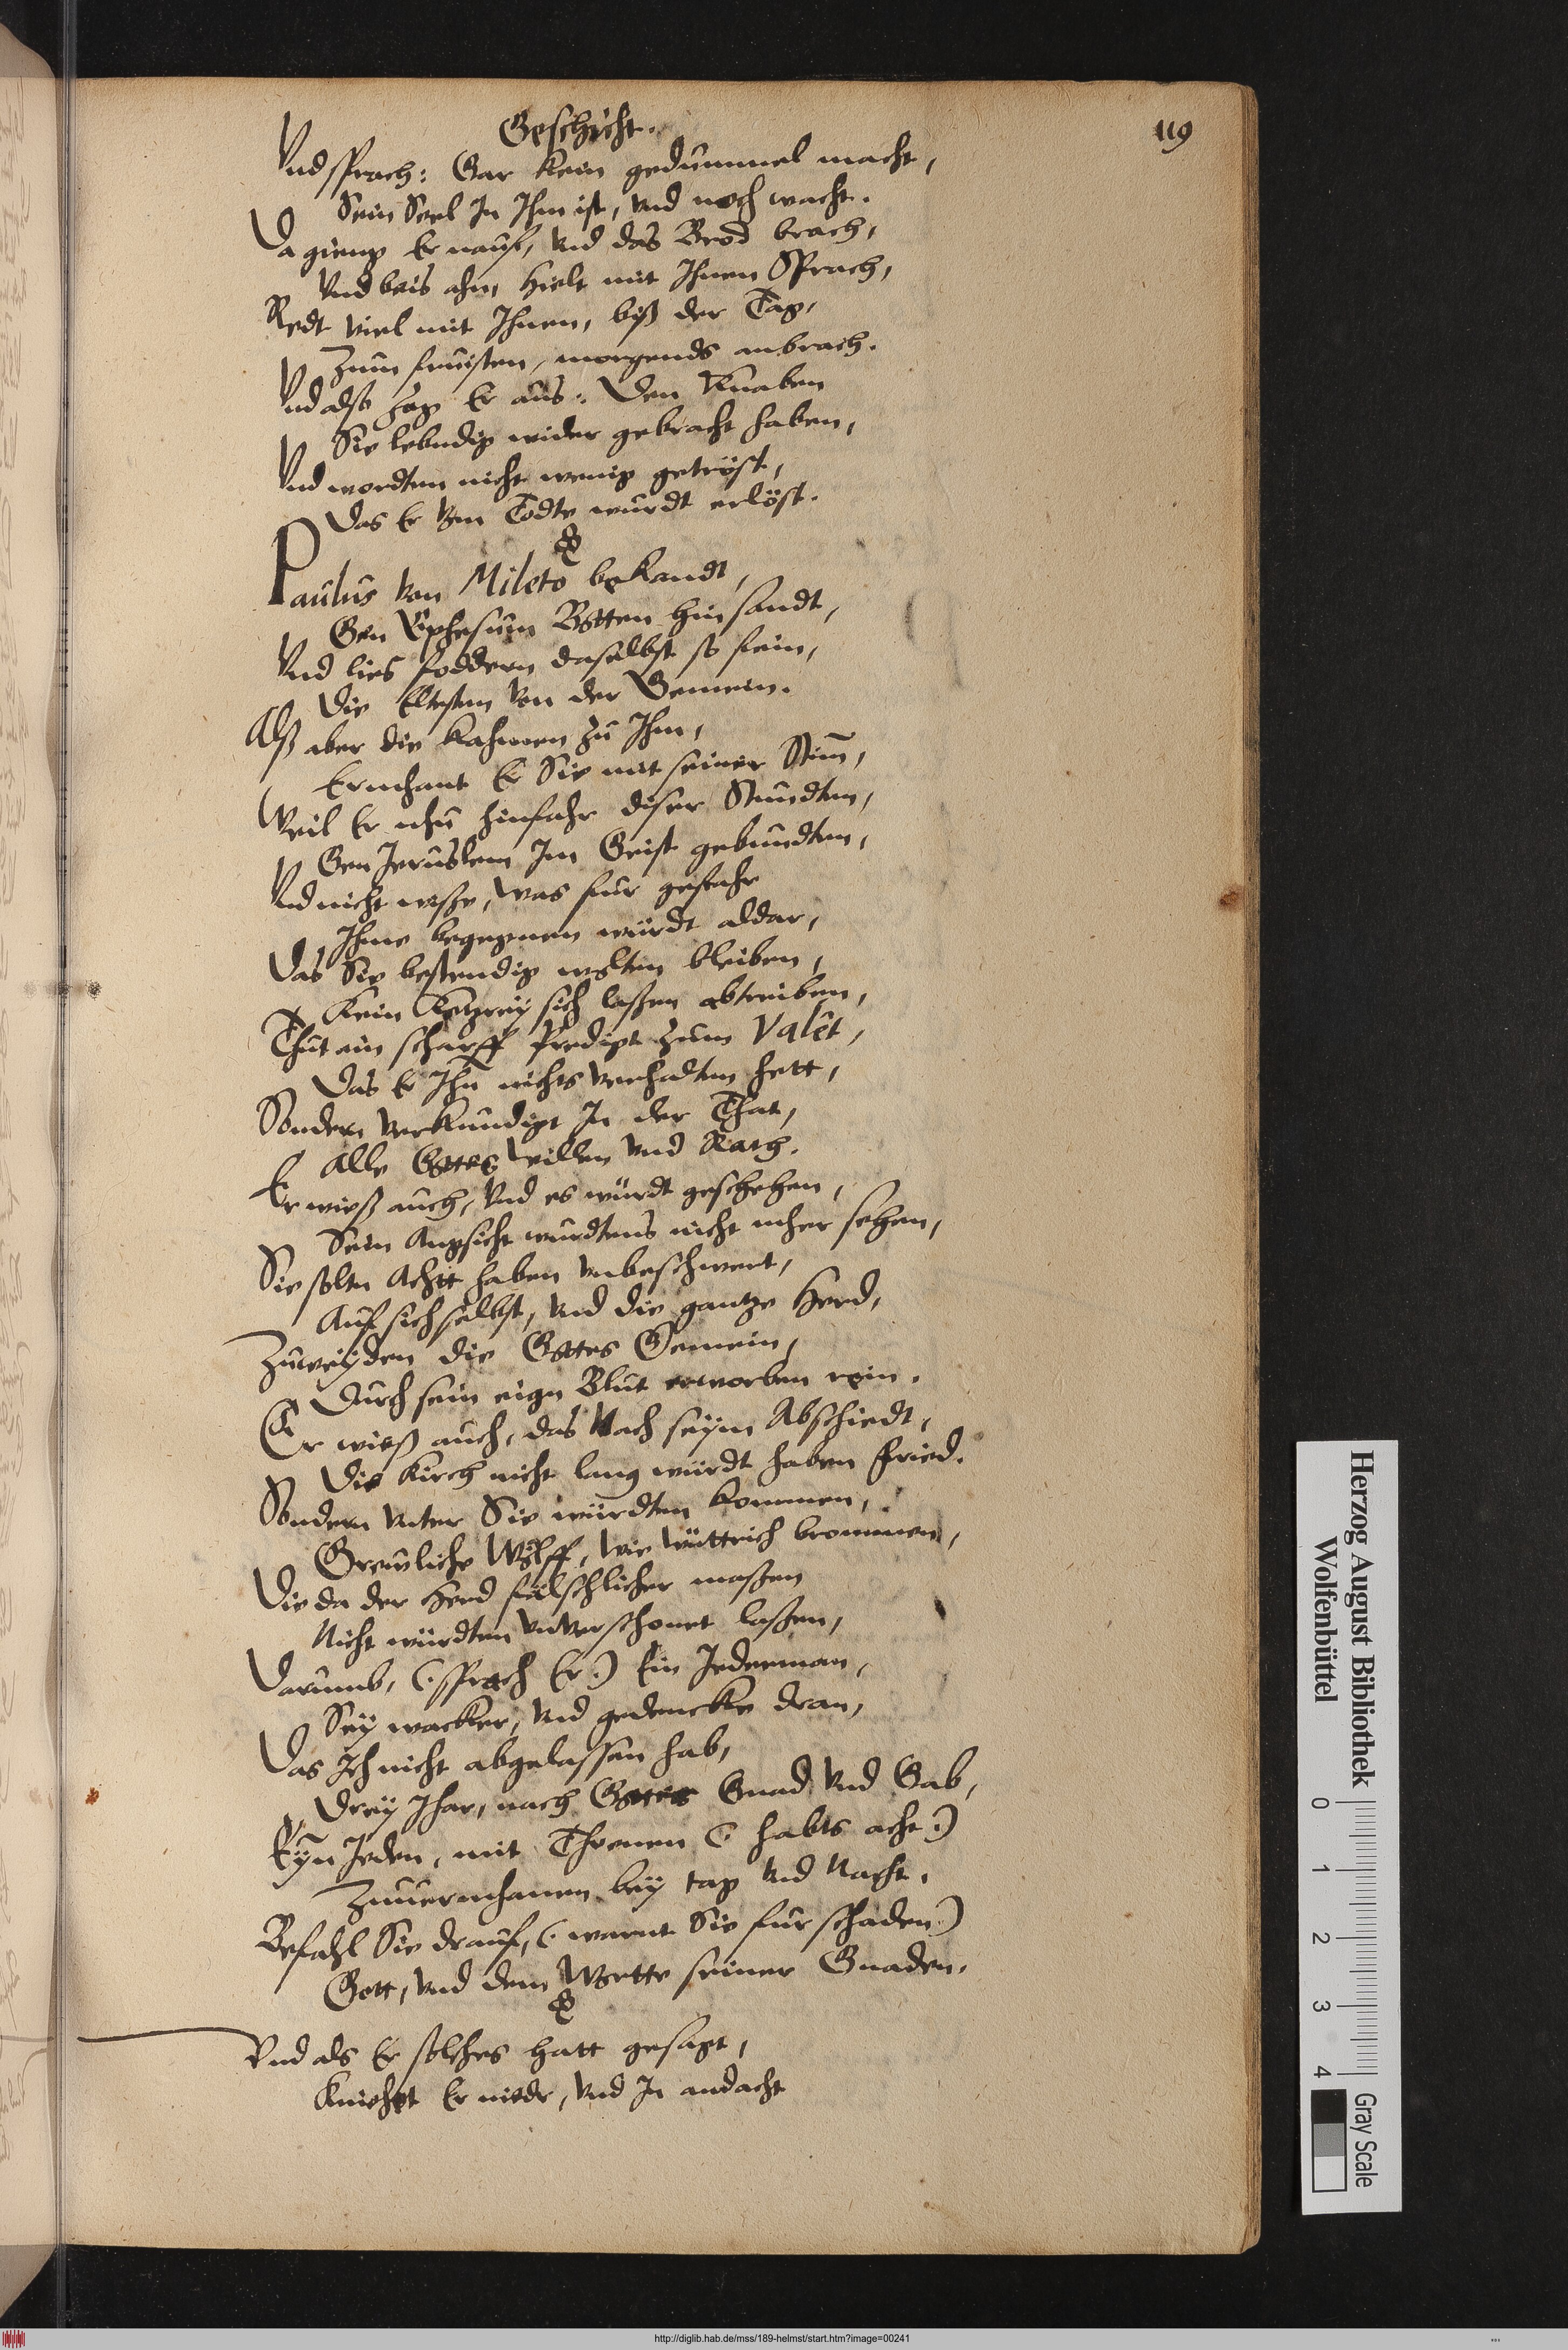 Geschicht.
119
Vnd sprach: Gar kein gedummel macht,
Sein Seel In Ihm ist, vnd noch wacht.
Da gieng Er nauf, vnd das Brod brach,
Vnd beis ahn, hielt mit Ihnen Sprach,
Redt viel mit Ihnen, biß der Tag,
Zum fruisten, morgends anbrach.
Vnd also zog Er aus: Den Knaben
Sie lebndig wider gebracht haben,
Vnd wordten nicht wenig getröst,
Das Er vom Todte wurdt erlöst.
Paulus von Mileto bekandt,
Gen Ephesum Botten hin sandt,
Vnd lies foddern daselbst so fein,
Die Eltesten von der Gemein.
Alß aber die kahmen zu Ihm,
Ermhant Er Sie mit seiner Stim̄,
Weil Er nhu hinfahr diser Stundten,
Gen Jeruslem Im Geist gebundten,
Vnd nicht wiße, was fur gefahr
Ihme begegnen würdt aldar,
Das Sie bestendig wolten bleiben,
Kein Ketzrey sich laßen abtreiben,
Thut ein scharff Predigt zum Valet,
Das Er Ihn̄ nichts verhadten hett,
Sondern verkundigt In der That,
Alle Gottes willen vnd Rath.
Er wieß auch, vnd es würdt geschehen,
Sein Angsicht wurdtens nicht mher sehen,
Sie soltn Achtt haben vnbeschwert,
Auf sich selbst, vnd die gantze Herd,
Zuweyden die Gottes Gemein,
Durch sein eign Blut erworben rein.
Er wieß auch, das Nach seym Abschiedt,
Die Kirch nicht lang würdt haben fried.
Sondern vnter Sie würdten kommen,
Grewliche Wölff, wie wüttrich brommen,
Die da der Herd fälschlicher maßen
Nicht würdten vnverschonet laßen,
Darumb, (: sprach Er :) Ein Jederman,
Sey wacker, vnd gedencke dran,
Das Ich nicht abgelassen hab,
Drey Ihar, nach Gottes Gnad vnd Gab,
Eyn̄ Jeden, mit Threnen (: habts acht :)
Zuuermhanen bey tag vnd Nacht.
Befahl Sie drauf, (: warnt Sie fur schaden :)
Gott, vnd dem Wortte seiner Gnaden.
Vnd als Er solches hatt gesagt,
Kniehet Er nieder, vnd In andacht
Herzog August Bibliothek
Wolfenbüttel
0 1 2 3 4
Gray Scale
http://diglib.hab.de/mss/189-helmst/start.htm?image=00241